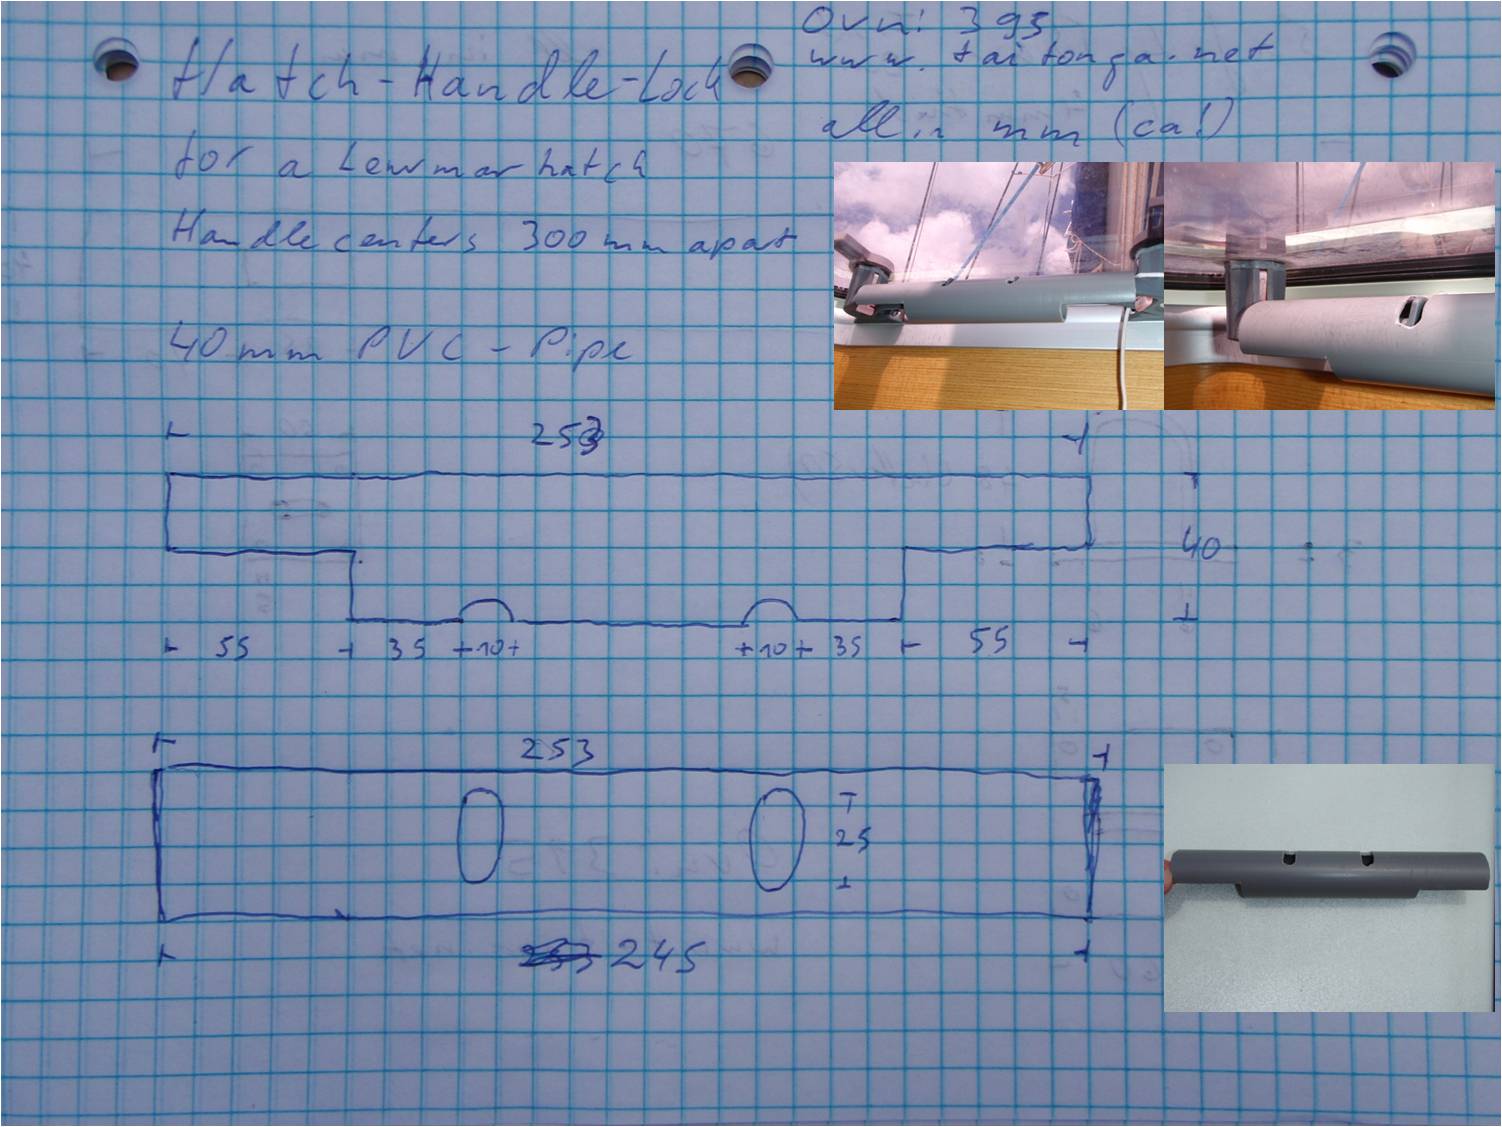 Hatch-Handle-Lock
for a Lewmar hatch
Handle centers 300 mm apart
40 mm PVC - Pipe
Ovni 395
www.taitonga.net
all in mm (ca!)
253
40
55 35 10 10 35 55
253
25
245